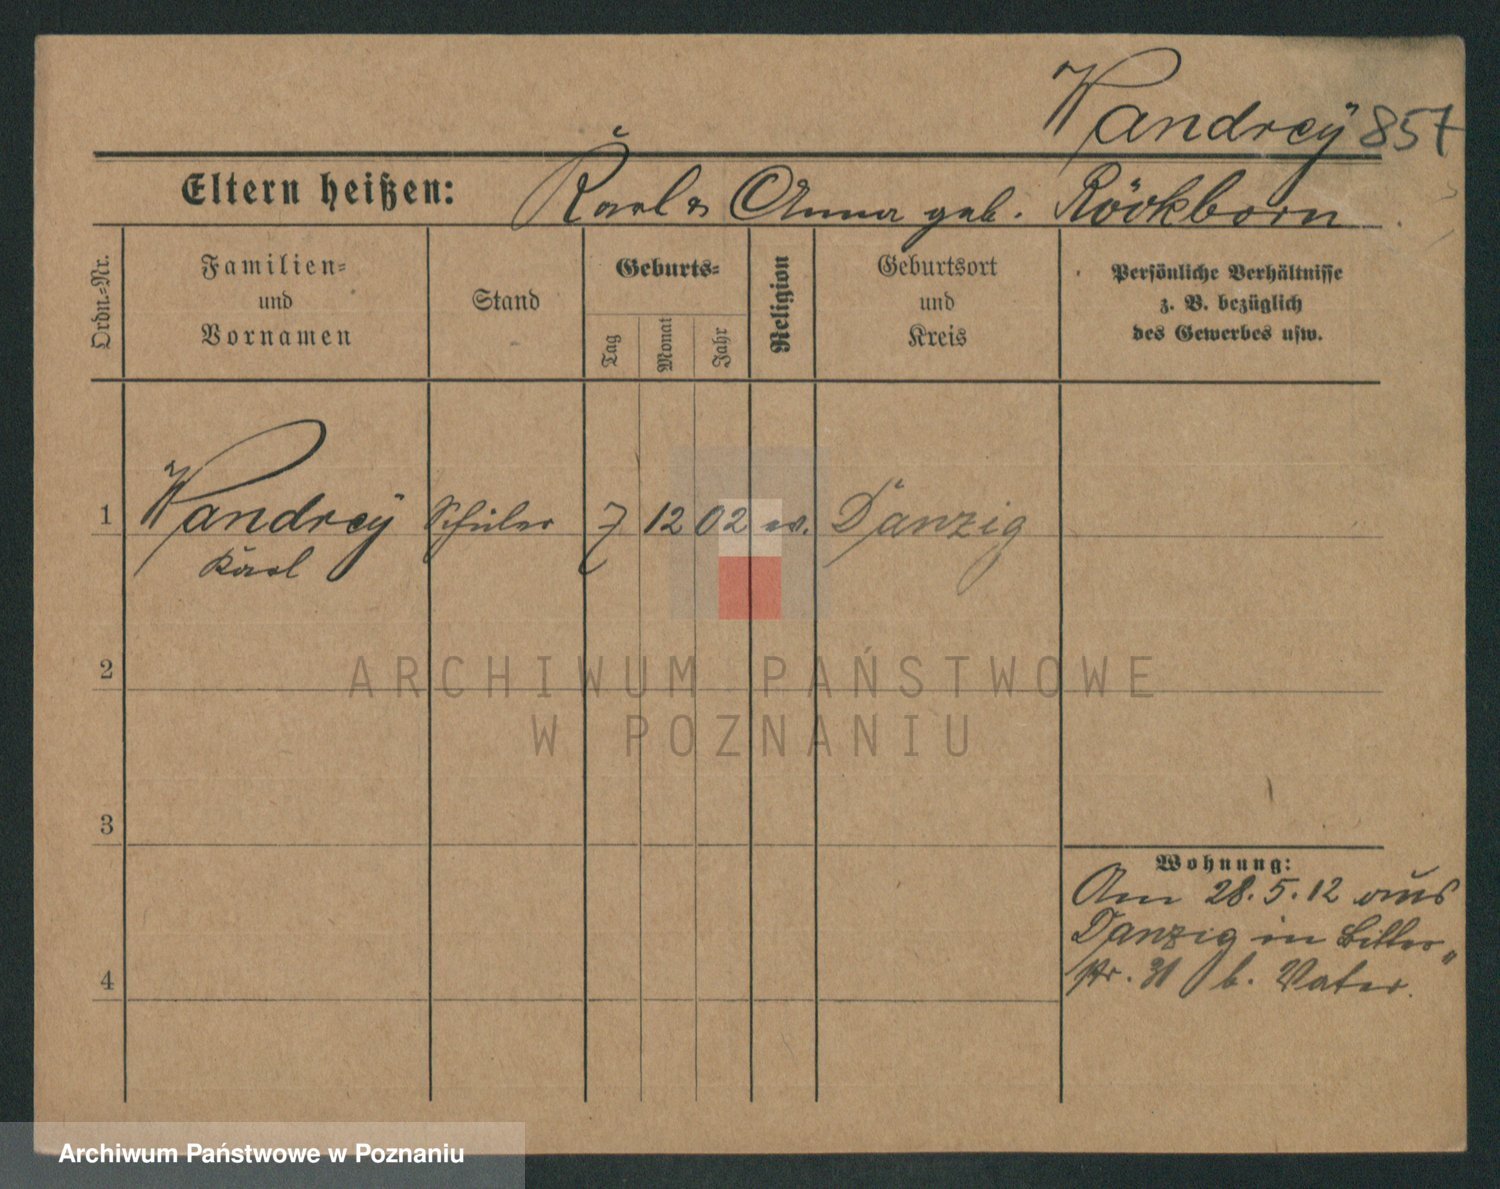 Wandrey 857
Eltern heißen: Karl & Anna geb. Röckborn
Ordn.-Nr.
Familien-
und
Vornamen
Stand
Geburts-
Tag
Monat
Jahr
Religion
Geburtsort
und
Kreis
Persönliche Verhältnisse
z. B. bezüglich
des Gewerbes usw.
1 Wandrey Schüler 7 12 02 ev. Danzig
Karl
2
3
4
Wohnung:
Am 28.5.12 aus
Danzig in Bitter„
str. 31 b. Vater.
ARCHIWUM PAŃSTWOWE
W POZNANIU
Archiwum Państwowe w Poznaniu